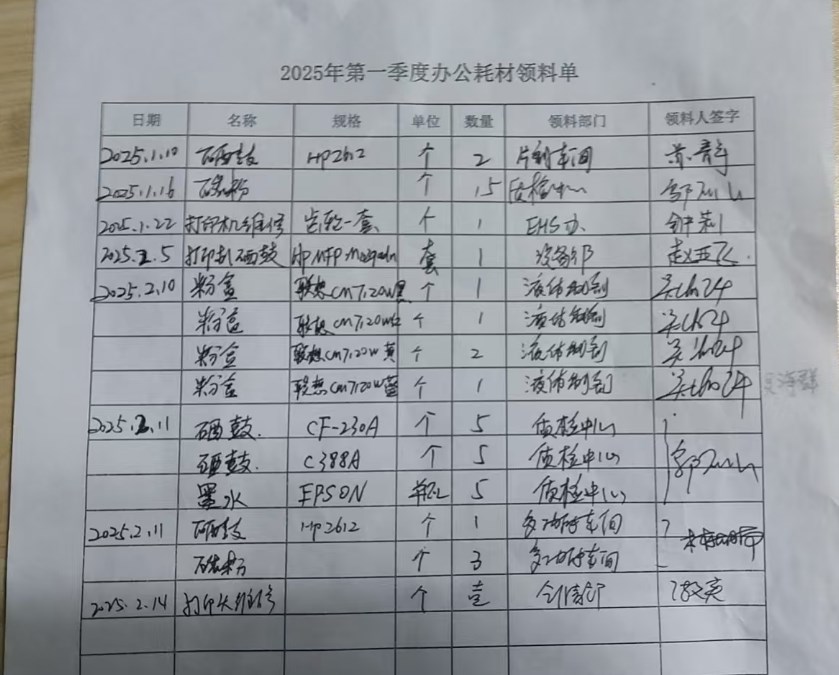 2025年第一季度办公耗材领料单
日期 名称 规格 单位 数量 领料部门 领料人签字
2025.1.10 硒鼓 HP2612 个 2 片剂车间
2025.1.16 碳粉 个 15 质检中心
2025.1.22 打印机维修 齿轮一套 个 1 EHS办
2025.2.5 打印机硒鼓 HP MFP 套 1 设备部 赵亚飞
2025.2.10 粉盒 联想CM7120W黑 个 1 液体制剂
粉盒 联想CM7120W红 个 1 液体制剂
粉盒 联想CM7120W黄 个 2 液体制剂
粉盒 联想CM7120W蓝 个 1 液体制剂
2025.2.11 硒鼓. CF-230A 个 5 质检中心
硒鼓. C388A 个 5 质检中心
墨水 EPSON 瓶 5 质检中心
2025.2.11 硒鼓 HP2612 个 1 车间
碳粉 个 3 车间
2025.2.14 打印机维修 个 壹